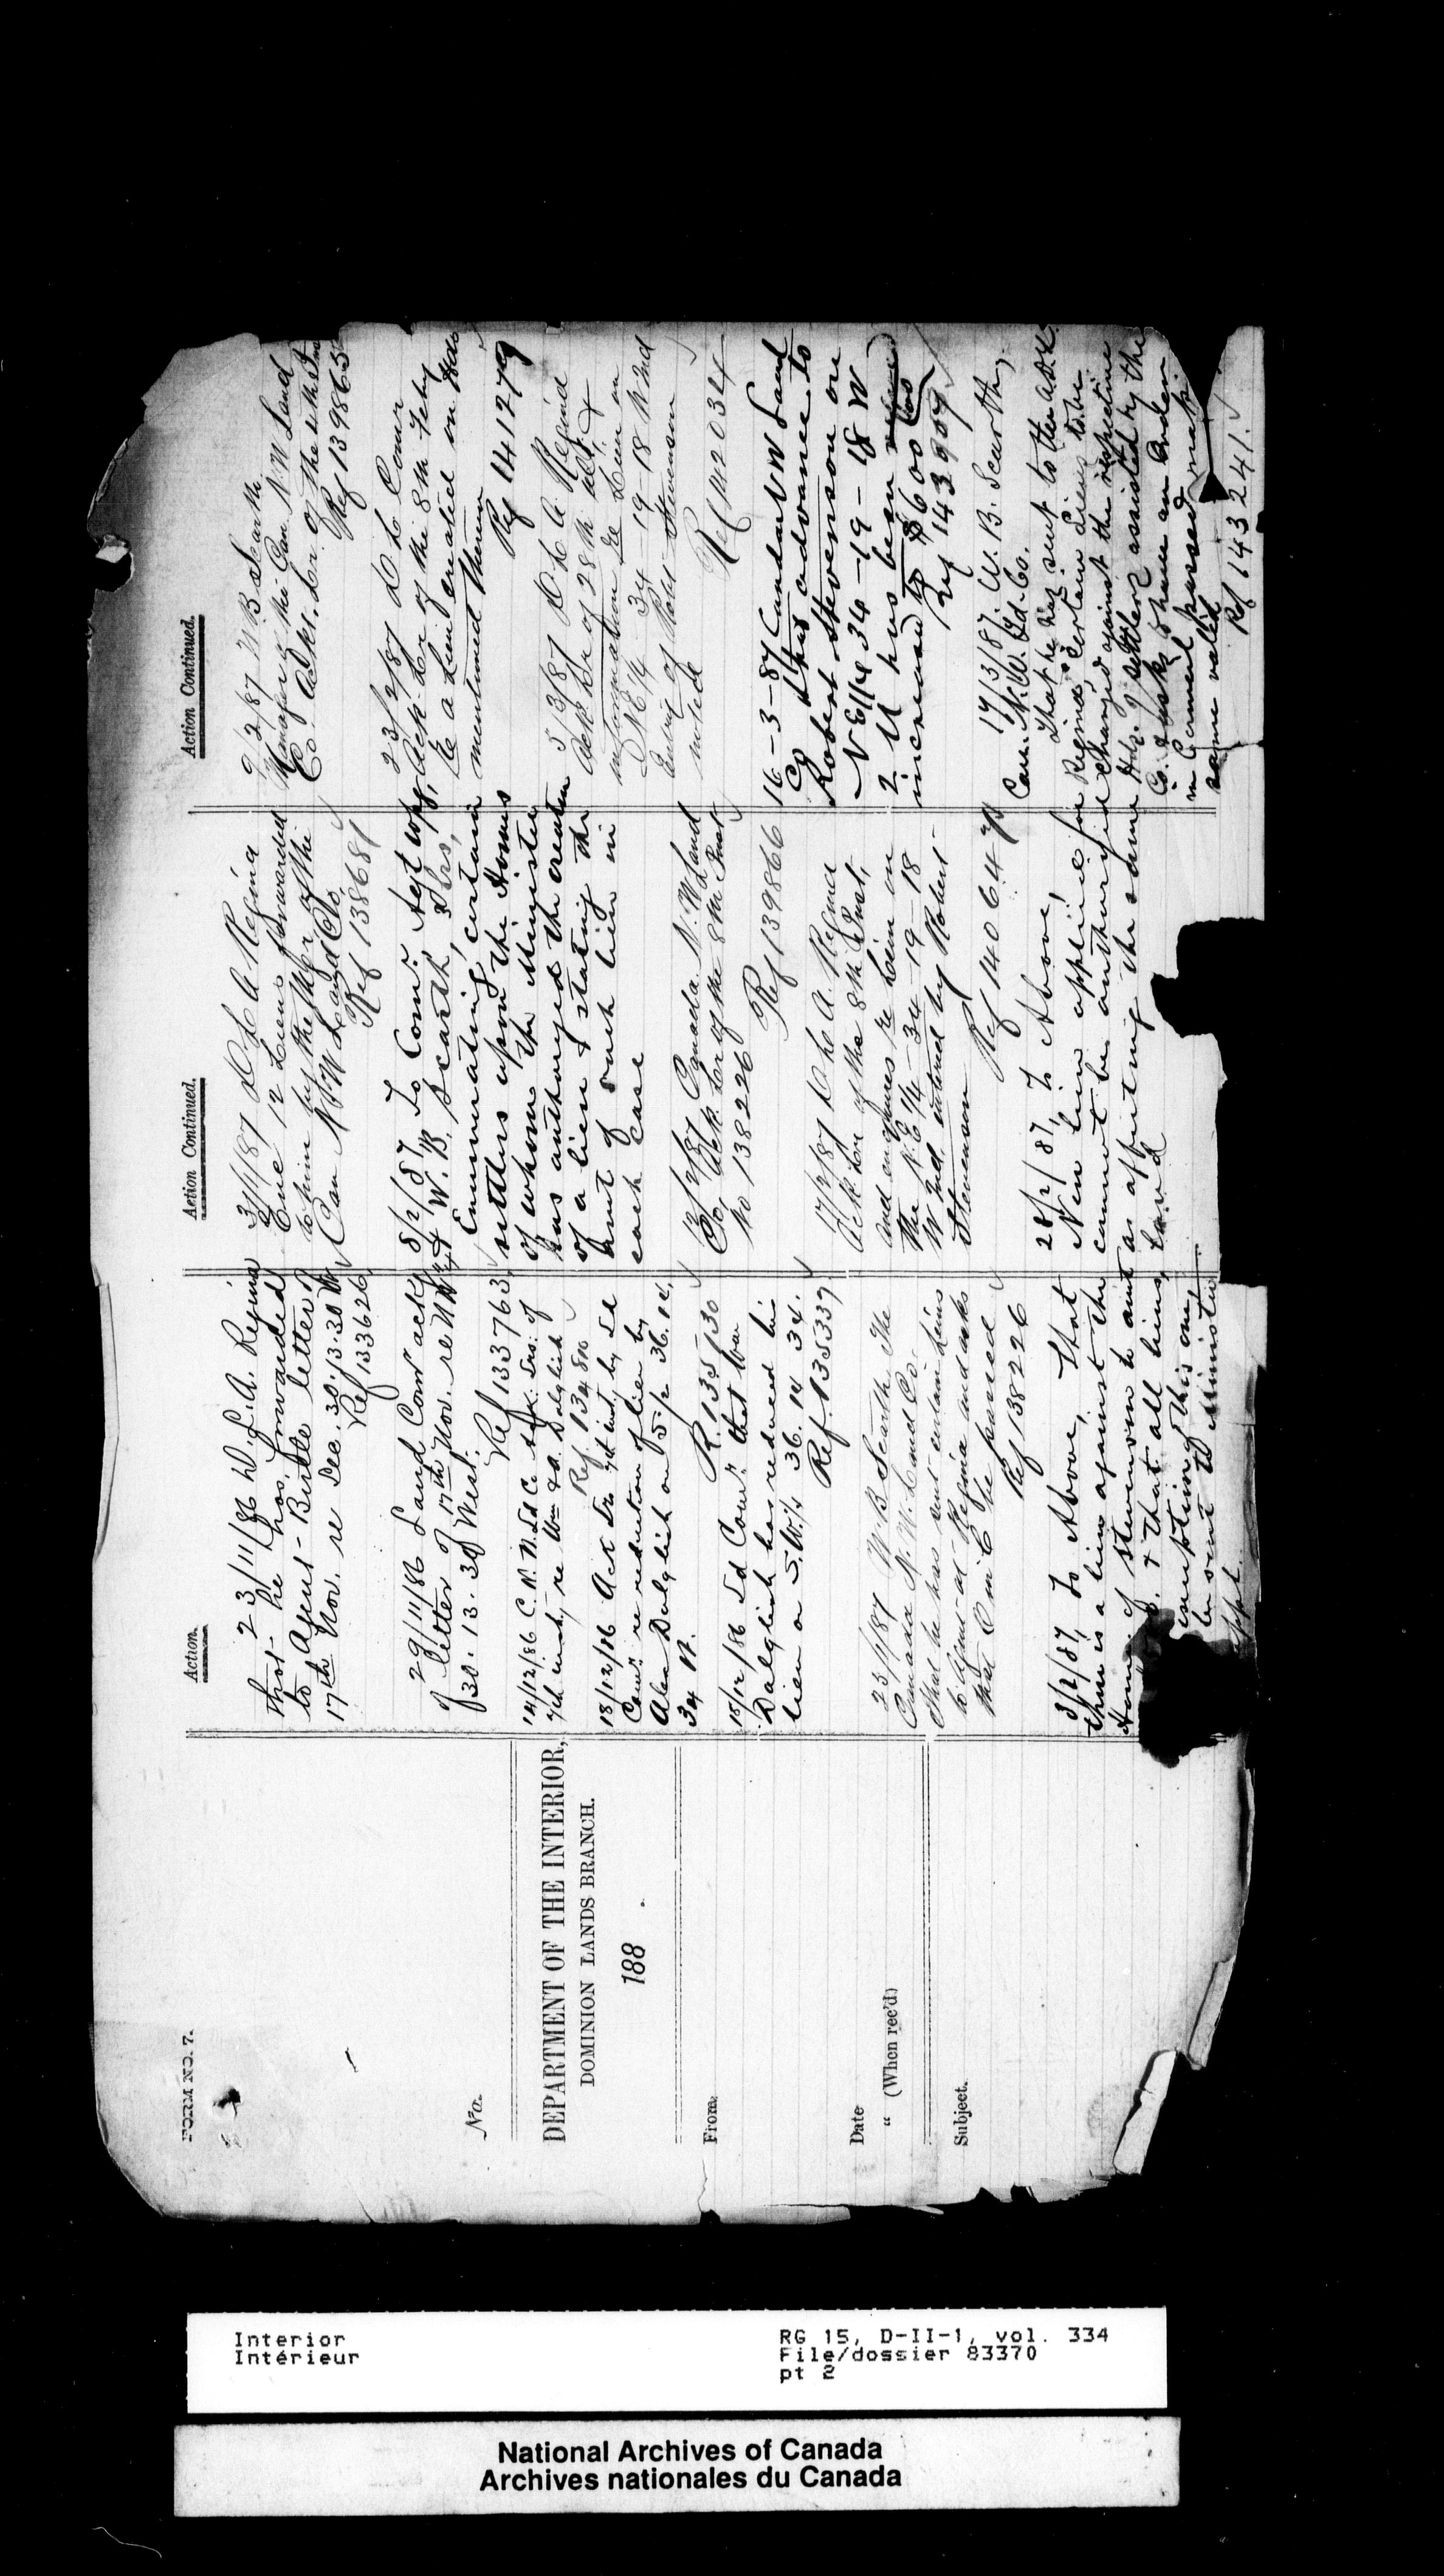 FORM NO. 7.
No.
DEPARTMENT OF THE INTERIOR,
DOMINION LANDS BRANCH.
188 .
From
Date
" (When rec'd)
Subject.
Action.
23/11/86 D.L.A. Regina
that he has forwarded
to Agent - Butte letter of
17th Nov. re Sec. 30. 13. 30 W
Ref 133626
29/11/86 Land Comr ack
of letter of 17th Nov. re NW 1/4
30. 13. 30 West.
Ref 133763
14/12/86 C. N. W. Ld Co ack. Ins: of
7th inst, re Wm & A. Dalglish
Ref. 134
18/12/86 Ack Ins 7th inst, by Ld
Comr. re reduction of lien by
Alex Dalglish on S. 1/2 36. 14.
34 W.
R. 135130
18/12/86 Ld Comr. that Wm
Dalglish has reduced his
lien on S.W. 1/4 36. 14 34.
Ref. 135339
25/1/87 W. B Scarth The
Canada N. W. Land Co.
that he has sent certain liens
to Agent at Regina and asks
that O in C be passed
Ref 138226
8/2/87, To Above, that
there is a lien against the
Hom. of Stevenson to amt
& that all liens,
excepting this one,
be sent to Minister
appl.
Action Continued.
31/1/87 D. L. A Regina
Enc 12 Liens forwarded
to him by the Mgr of the
Can N W Land Co.
Ref 138681
8/2/87 To Comr. Sept copy,
& W. B. Scarth, 3 lrs,
Enumerating, certain
settlers upon the Homes
of whom the Minister
has authorized the creation
of a lien & stating the
amt of such lien in
each case
12/2/87 Canada N. W Land
Co, Ack. Lr of the 8th Inst
No 138226
Ref 139866
17/2/87 D. L. A. Regina
Ack Lr of the 8th Inst,
and enquires re Lien on
the N. E 1/4 - 34 - 19 - 18
W 2nd, entered by Robert
Stevenson
Ref 140647
28/2/87, To Above,
New lien applied for
cannot be authorized
as affecting the same
land
Action Continued.
9/2/87 W B Scarth
Manager the Can N. W Land
Co. Acks. Lr. of the 4th Inst
Ref 139865
23/2/87 D L Comr
Ack Lr of the 8th Feby
re a Lien created on Hds
mentioned therein
Ref 141279
5/3/87 D. L. A. Regina
Ack Lr of 28th ult. &
information re Lien on
N E 1/4 34 - 19 - 18 W 2nd
Entry of Robt Stevenson
noted
Ref 142034
16-3-87 Canada N W Land
Co that advance to
Robert Stevenson on
N E 1/4 34 - 19 - 18 W
2 M has been
increased to $600
Ref 143907
17/3/87. W. B. Scarth,
Can. N. W. Ld. Co.
That he has sent to the A.D.L.
Regina, certain Liens to be
charged against the respective
Hds. of settlers assisted by the
Co. & asks to have an Order
in Council passed making
same valid
Ref 143241.
Interior
Intérieur
RG 15, D-II-1, vol. 334
File/dossier 83370
pt 2
National Archives of Canada
Archives nationales du Canada